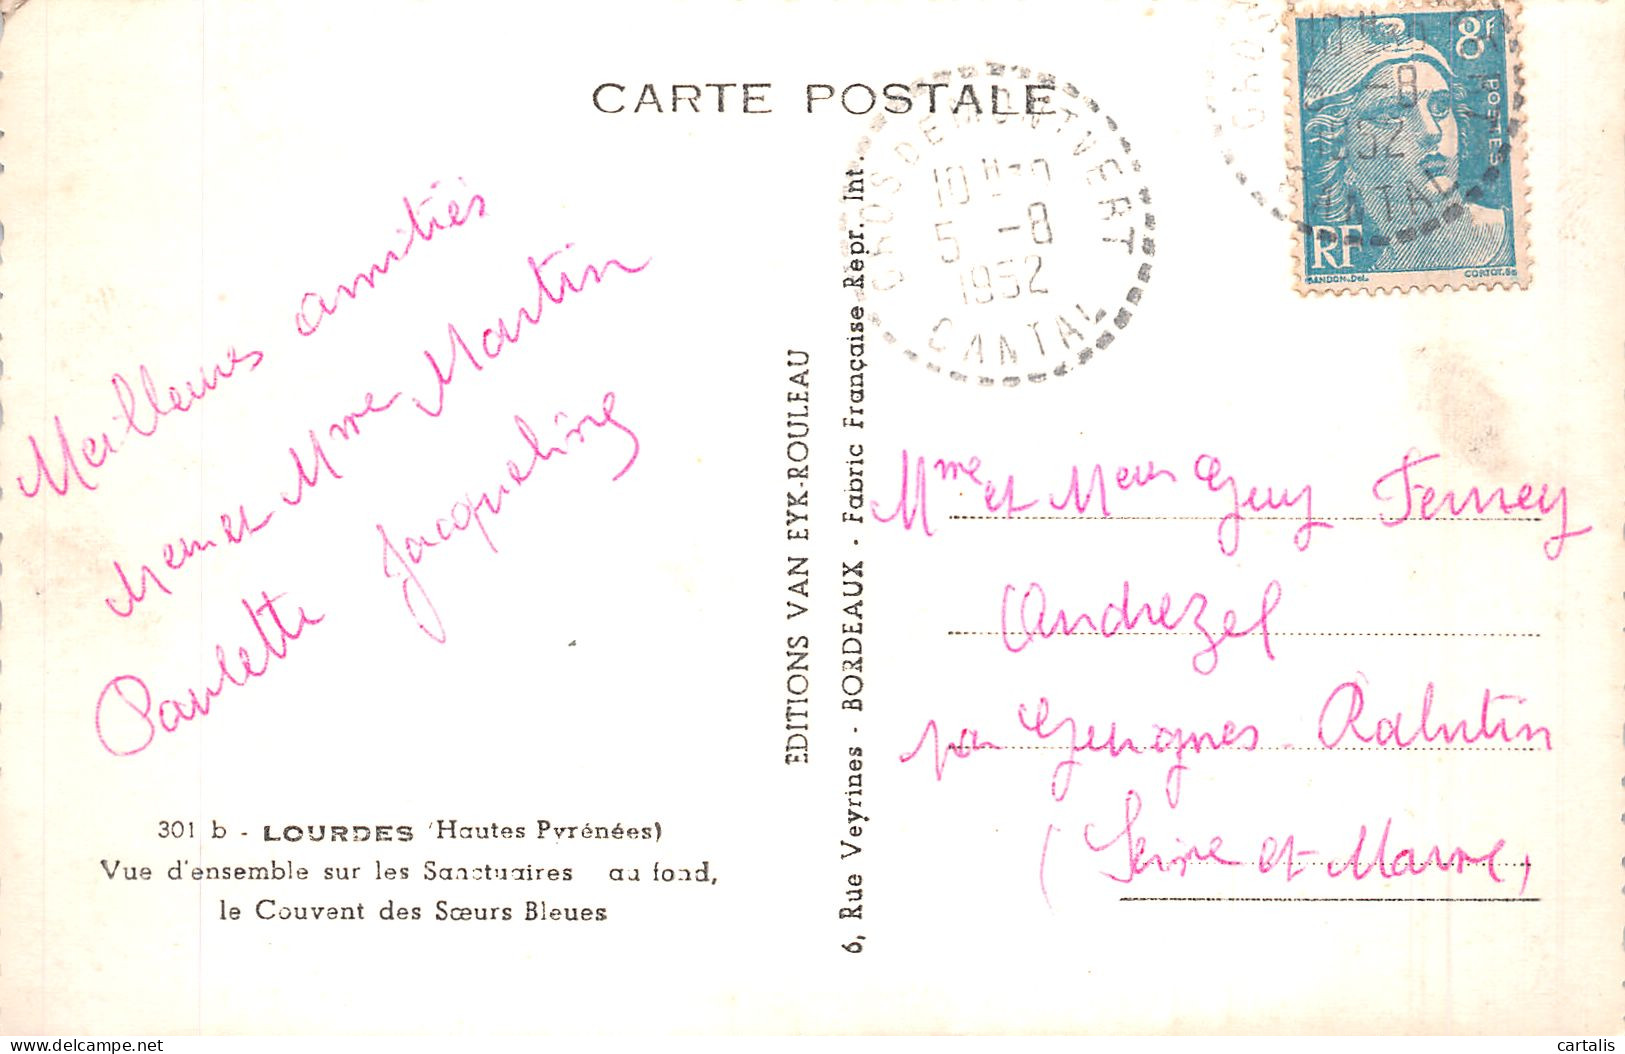 CARTE POSTALE
Meilleures amitiés
Meur et Mme Martin
Paulette Jacqueline
301 b - LOURDES (Hautes Pyrénées)
Vue d'ensemble sur les Sanctuaires au fond,
le Couvent des Sœurs Bleues
EDITIONS VAN EYK-ROULEAU
6, Rue Veyrines - BORDEAUX - Fabric Française Repr. Int.
CROS DE MONTVERT
10 H
5 -8
1952
CANTAL
8F
POSTES
RF
GANDON.DEL.
CORTOT.SC
5 -8
1952
CANTAL
Mme et Meur Guy
Andrezel
par Guignes-Rabutin
(Seine et-Marne)
cartalis